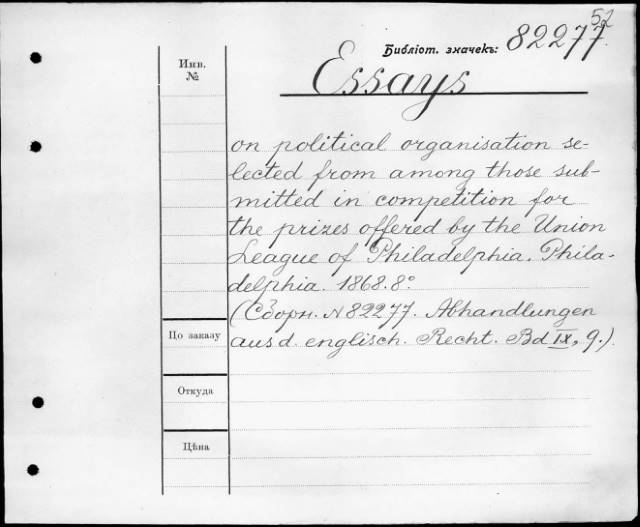 52
Библіот. значекъ: 82277.
Инв.
№
Essays
on political organisation se-
lected from among those sub-
mitted in competition for
the prizes offered by the Union
League of Philadelphia. Phila-
delphia. 1868. 8°
(Сборн. N 82277. Abhandlungen
aus d. englisch. Recht. Bd IX, 9.)
По заказу
Откуда
Цѣна